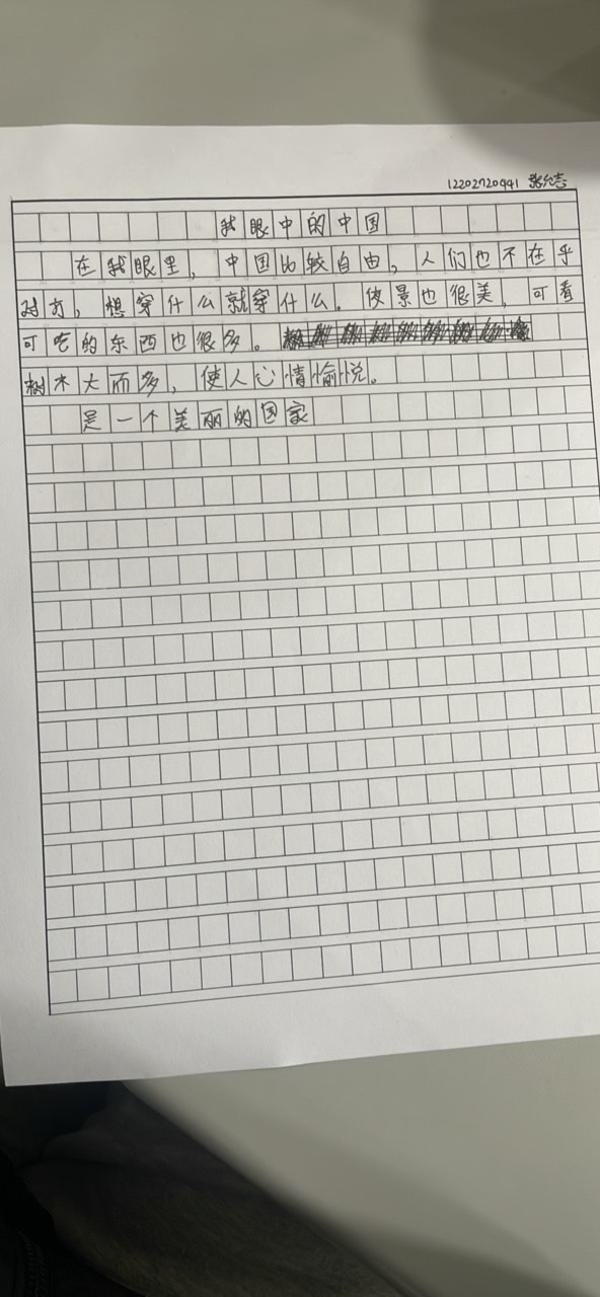 12202720941 张允志
我眼中的中国
在我眼里，中国比较自由，人们也不在乎
对方，想穿什么就穿什么。夜景也很美，可看
可吃的东西也很多。
树木大而多，使人心情愉悦。
是一个美丽的国家